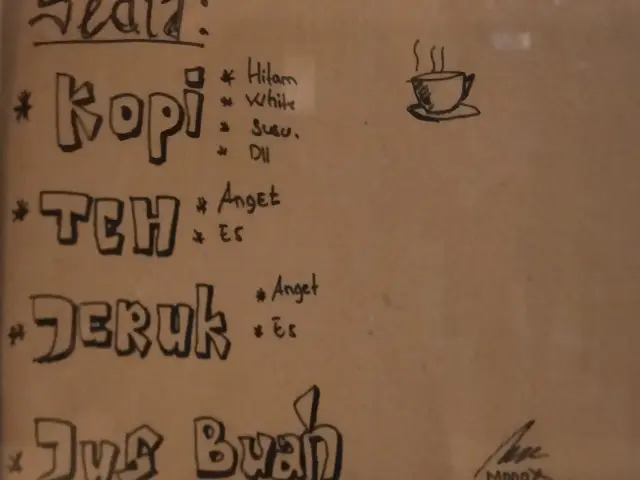 Sedia:
* Kopi
* Hitam
* White
* Susu.
* Dll
* TEH
* Anget
* Es
* JERuk
* Anget
* Es
* Jus Buah